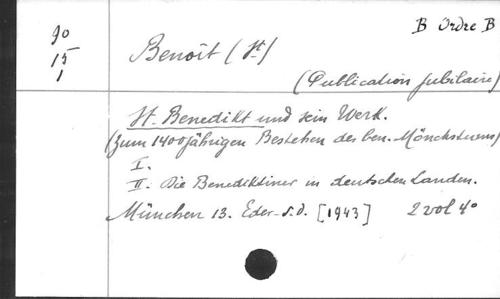 90
15
1
B Ordre B
Benoît (St)
(Publication Jubilaire)
St. Benedikt und sein Werk.
(Zum 1400jährigen Bestehen des ben. Mönchstums)
I.
II. Die Benediktiner in deutschen Landen.
München 13. Eder s.d. [1943] 2 vol 4°